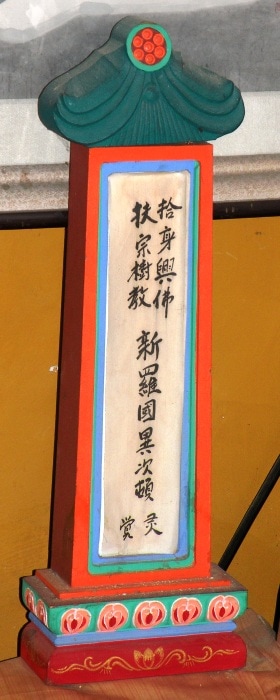 捨身興佛
扶宗樹教
新羅國異次頓
灵